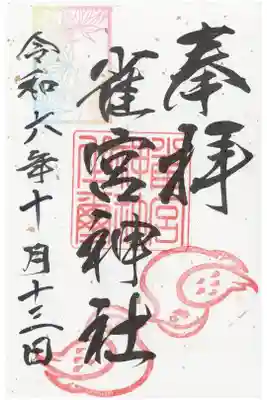 奉拝
雀宮神社
令和六年十月十三日